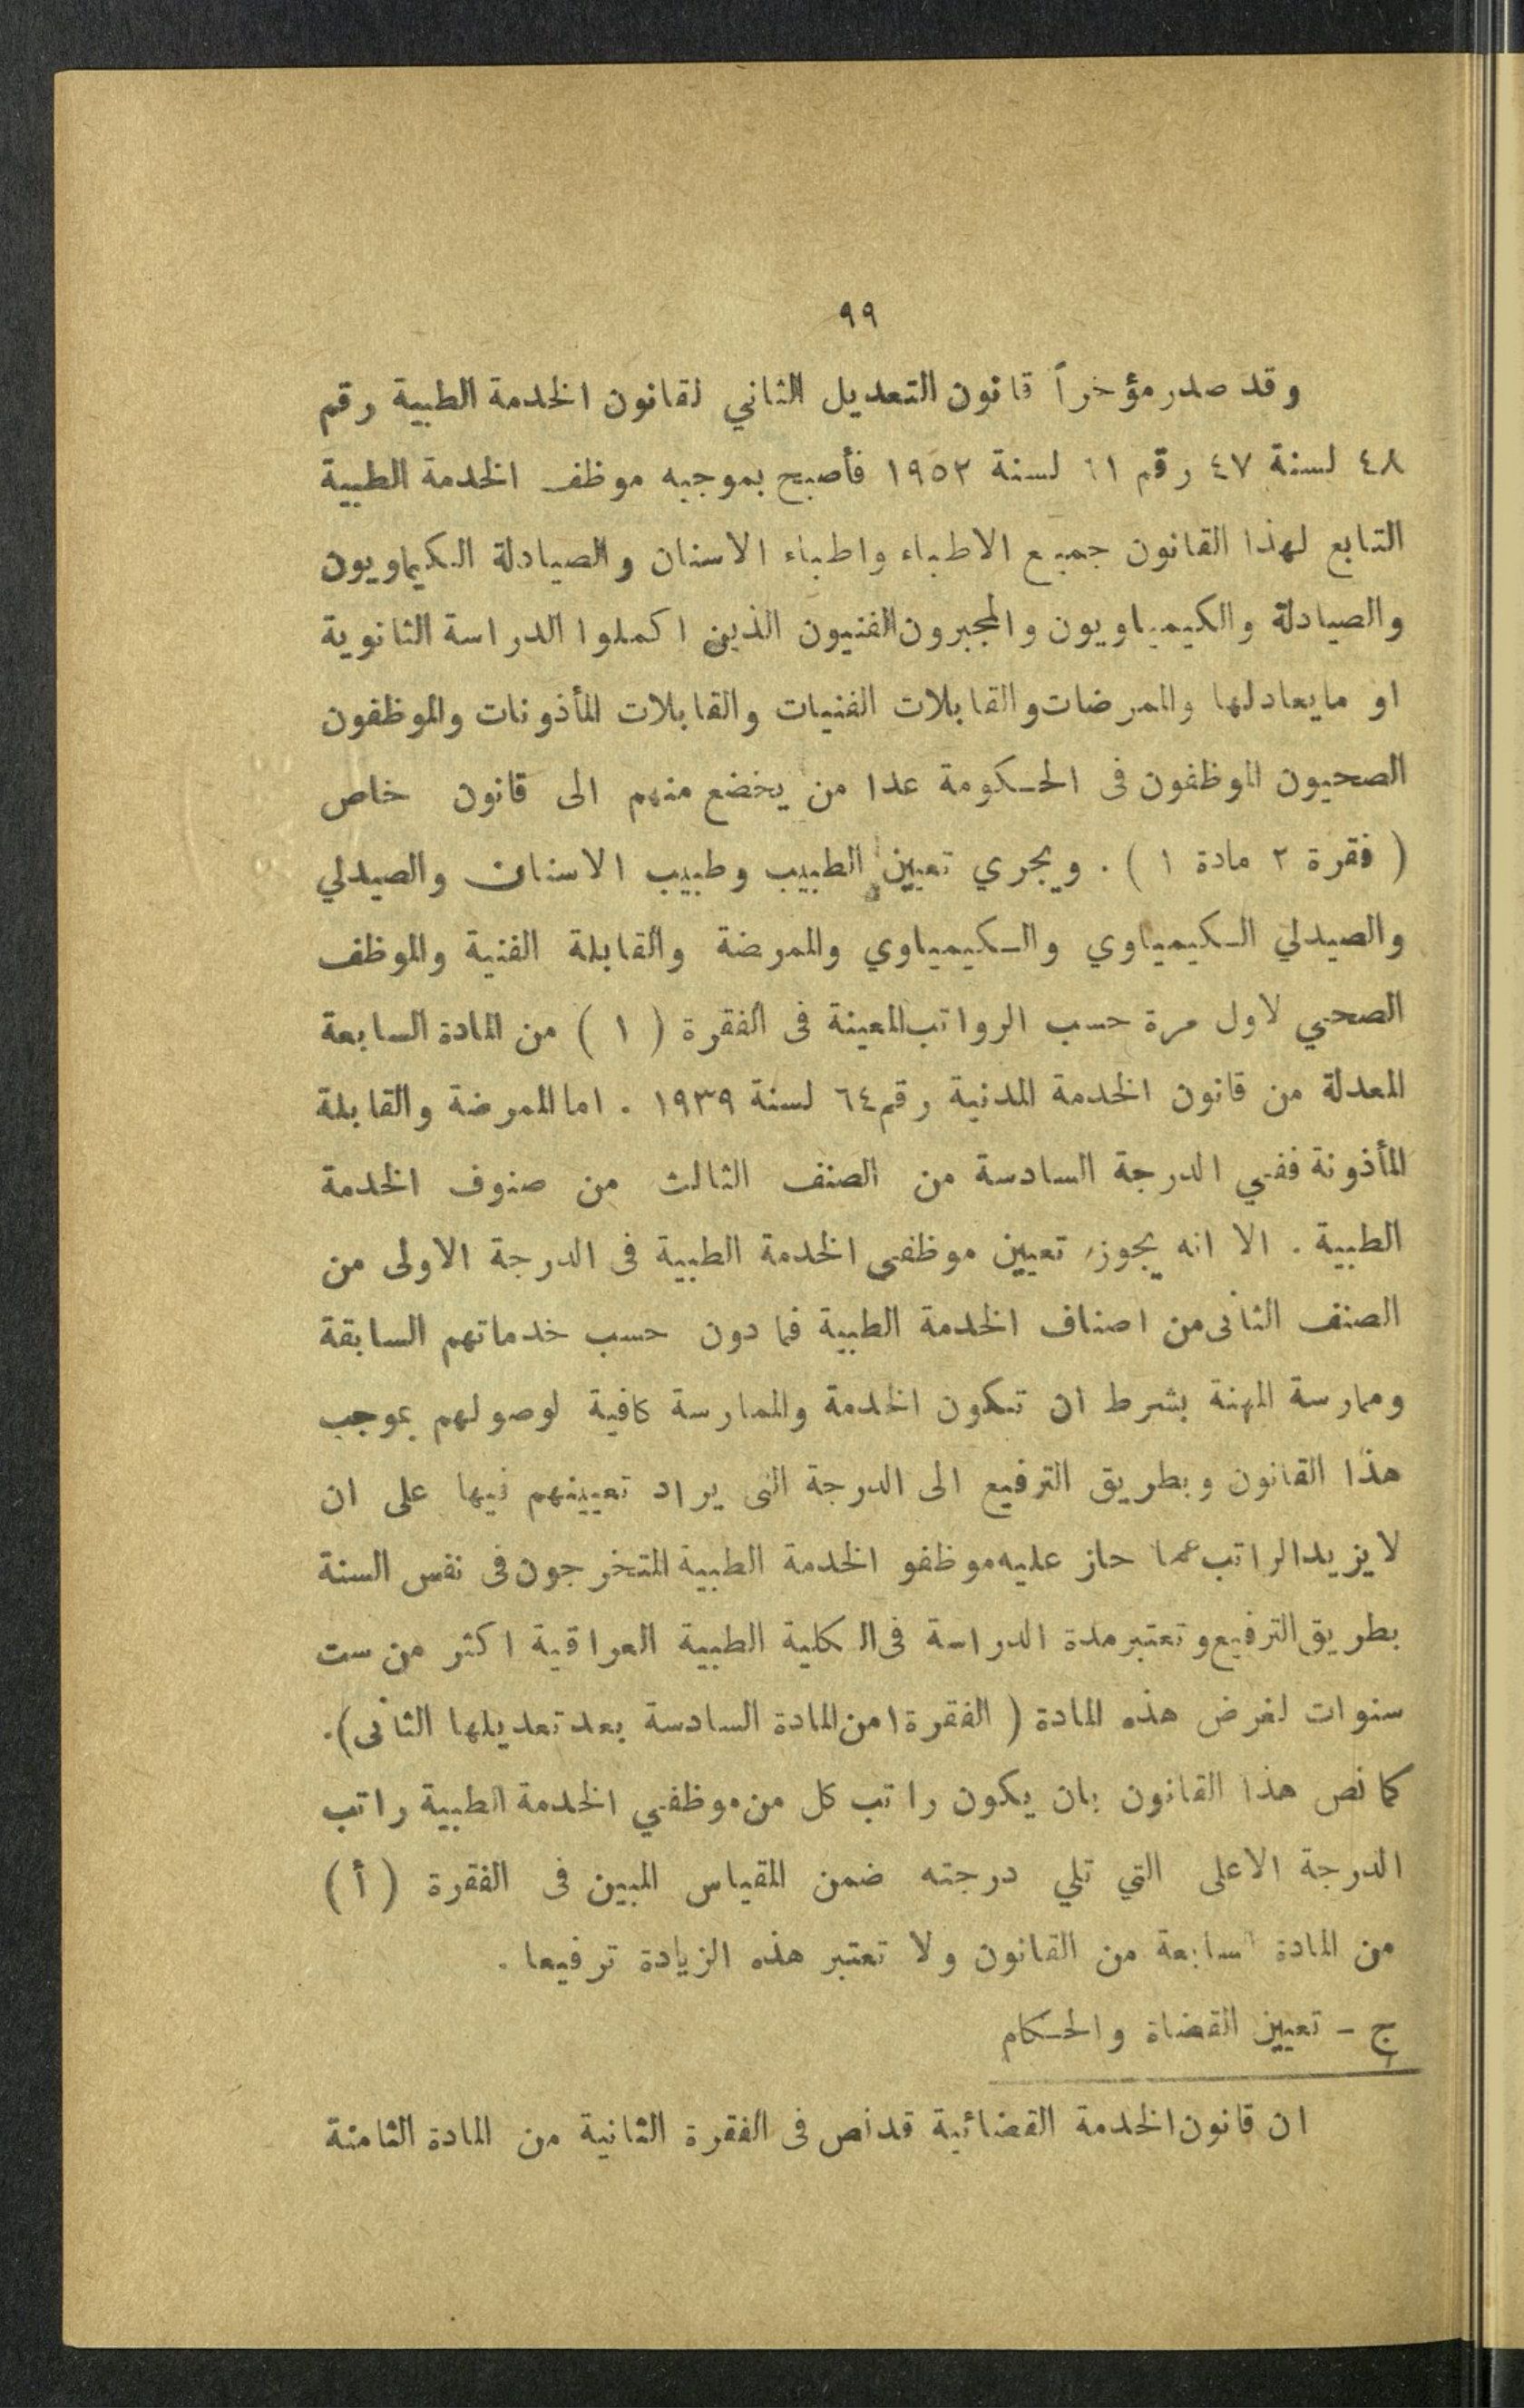 ٩٩
وقد صدر مؤخراً قانون التعديل الثاني لقانون الخدمة الطبية رقم
٤٨ لسنة ٤٧ رقم ٦١ لسنة ١٩٥٢ فأصبح بموجبه موظف الخدمة الطبية
التابع لهذا القانون جميع الاطباء واطباء الاسنان والصيادلة الكيماويون
والصيادلة والكيمياويون والمجبرون الفنيون الذين اكملوا الدراسة الثانوية
او مايعادلها والممرضات والقابلات الفنيات والقابلات المأذونات والموظفون
الصحيون الموظفون فى الحكومة عدا من يخضع منهم الى قانون خاص
( فقرة ٢ مادة ١ ) . ويجري تعيين الطبيب وطبيب الاسنان والصيدلي
والصيدلي الكيمياوي والكيمياوي والممرضة والقابلة الفنية والموظف
الصحي لاول مرة حسب الرواتب المعينة فى الفقرة ( ١ ) من المادة السابعة
المعدلة من قانون الخدمة المدنية رقم ٦٤ لسنة ١٩٣٩ . اما الممرضة والقابلة
المأذونة ففي الدرجة السادسة من الصنف الثالث من صنوف الخدمة
الطبية . الا انه يجوز تعيين موظفى الخدمة الطبية فى الدرجة الاولى من
الصنف الثانى من اصناف الخدمة الطبية فما دون حسب خدماتهم السابقة
وممارسة المهنة بشرط ان تكون الخدمة والممارسة كافية لوصولهم بموجب
هذا القانون وبطريق الترفيع الى الدرجة التى يراد تعيينهم فيها على ان
لا يزيد الراتب عما حاز عليه موظفو الخدمة الطبية المتخرجون فى نفس السنة
بطريق الترفيع وتعتبر مدة الدراسة فى الكلية الطبية العراقية اكثر من ست
سنوات لغرض هذه المادة ( الفقرة ١ من المادة السادسة بعد تعديلها الثانى ) .
كما نص هذا القانون بان يكون راتب كل من موظفي الخدمة الطبية راتب
الدرجة الاعلى التي تلي درجته ضمن المقياس المبين فى الفقرة ( أ )
من المادة السابعة من القانون ولا تعتبر هذه الزيادة ترفيعا .
ج – تعيين القضاة والحكام
ان قانون الخدمة القضائية قد نص فى الفقرة الثانية من المادة الثامنة